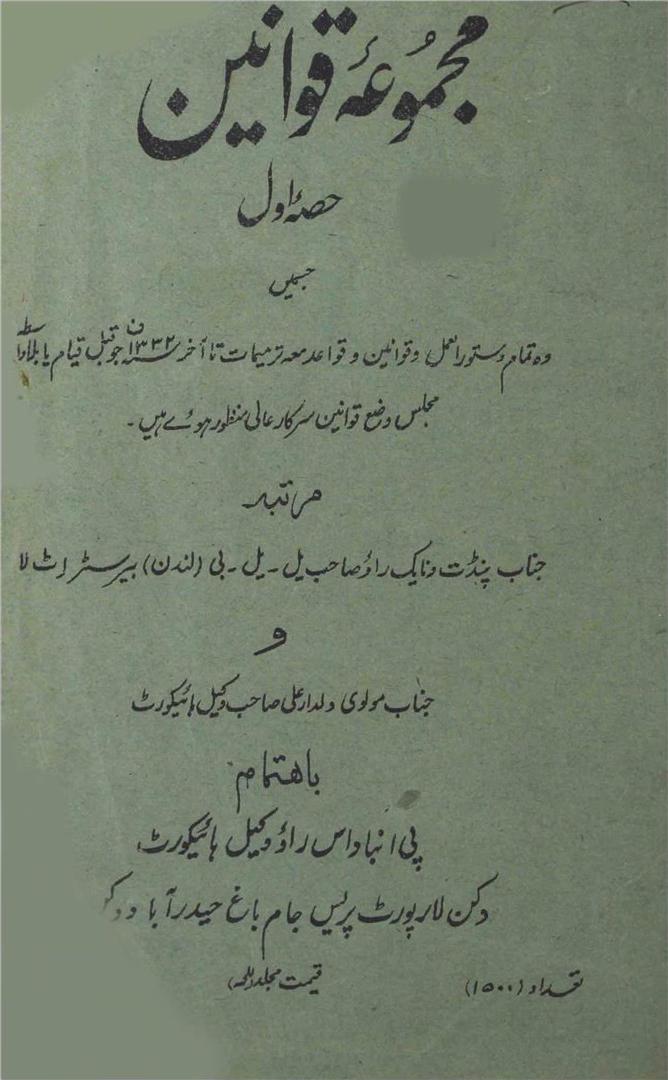 مجموعۂ قوانین
حصۂ اول
جسمیں
وہ تمام دستورالعمل و قوانین و قواعد معہ ترمیمات تا آخر سنہ ۱۳۳۲ف جو قبل قیام یا بلاواسطہ
مجلس وضع قوانین سرکار عالی منظور ہوئے ہیں ۔
مرتبہ
جناب پنڈت ونایک راؤ صاحب یل ۔ یل ۔ بی (لندن) بیرسٹر اٹ لا
و
جناب مولوی دلدار علی صاحب وکیل ہائیکورٹ
باہتمام
پی انباداس راؤ وکیل ہائیکورٹ
دکن لا رپورٹ پریس جام باغ حیدرآباد
تعداد (۱۵۰۰)
قیمت مجلد